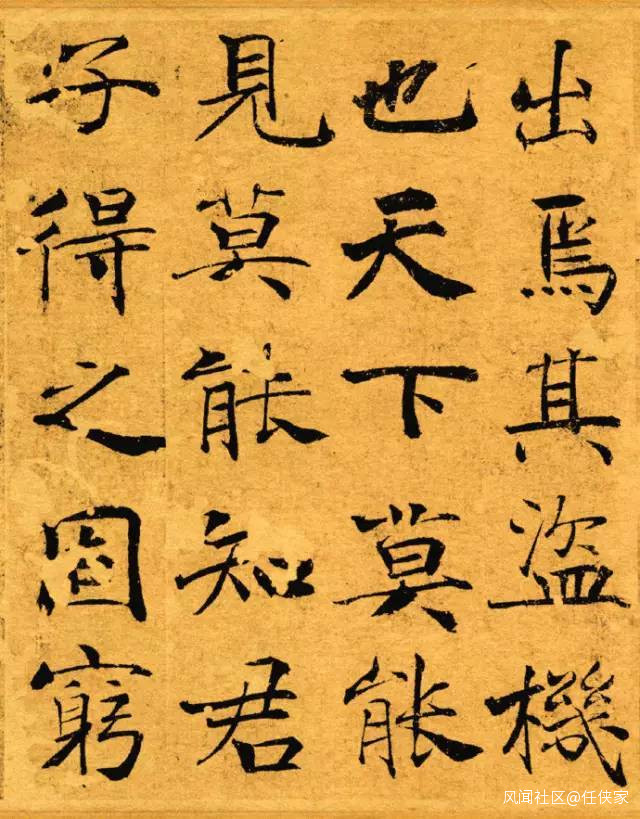 出焉其盜機
也天下莫能
見莫能知君
子得之固窮
风闻社区@任侠家